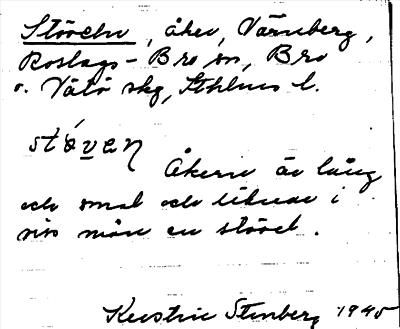 Stöveln, åker, Värnberg,
Roslags-Bro sn, Bro
o. Vätö skg, Sthlms l.
stø̀vaɳ
Åkern är lång
och smal och liknar i
viss mån en stövel.
Kerstin Stenberg 1945